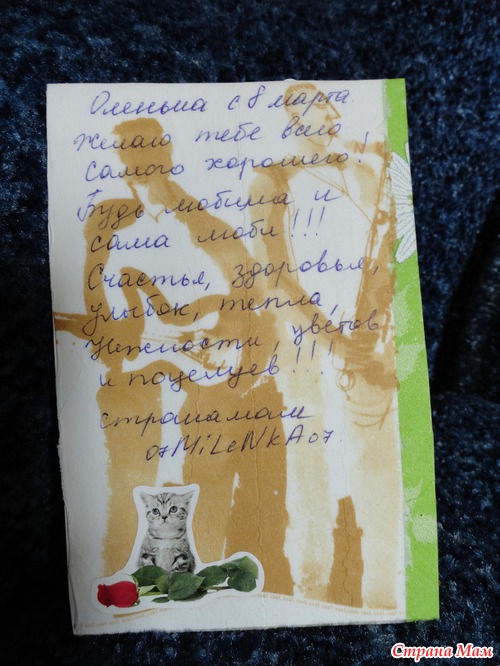 Оленька с 8 марта.
Желаю тебе всего
самого хорошего!
Будь любима и
сама люби!!!
Счастья, здоровья,
улыбок, тепла,
нежности, цветов
и поцелуев!!!
странамам
07MiLeNkA07.
Страна Мам